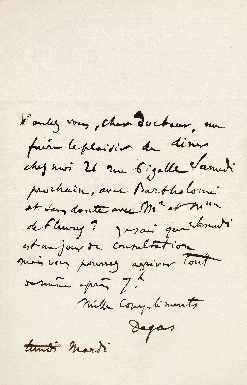 Voulez vous, cher Docteur, me
faire le plaisir de diner
chez moi 21 rue Pigalle Samedi
prochain, avec Bartholomé
et sans doute avec Mr et Mme
de Fleury? Je sais que Samedi
est un jour de Consultation
mais vous pourrez arriver tout
comme après 7h
Mille Compliments
Degas
lundi Mardi